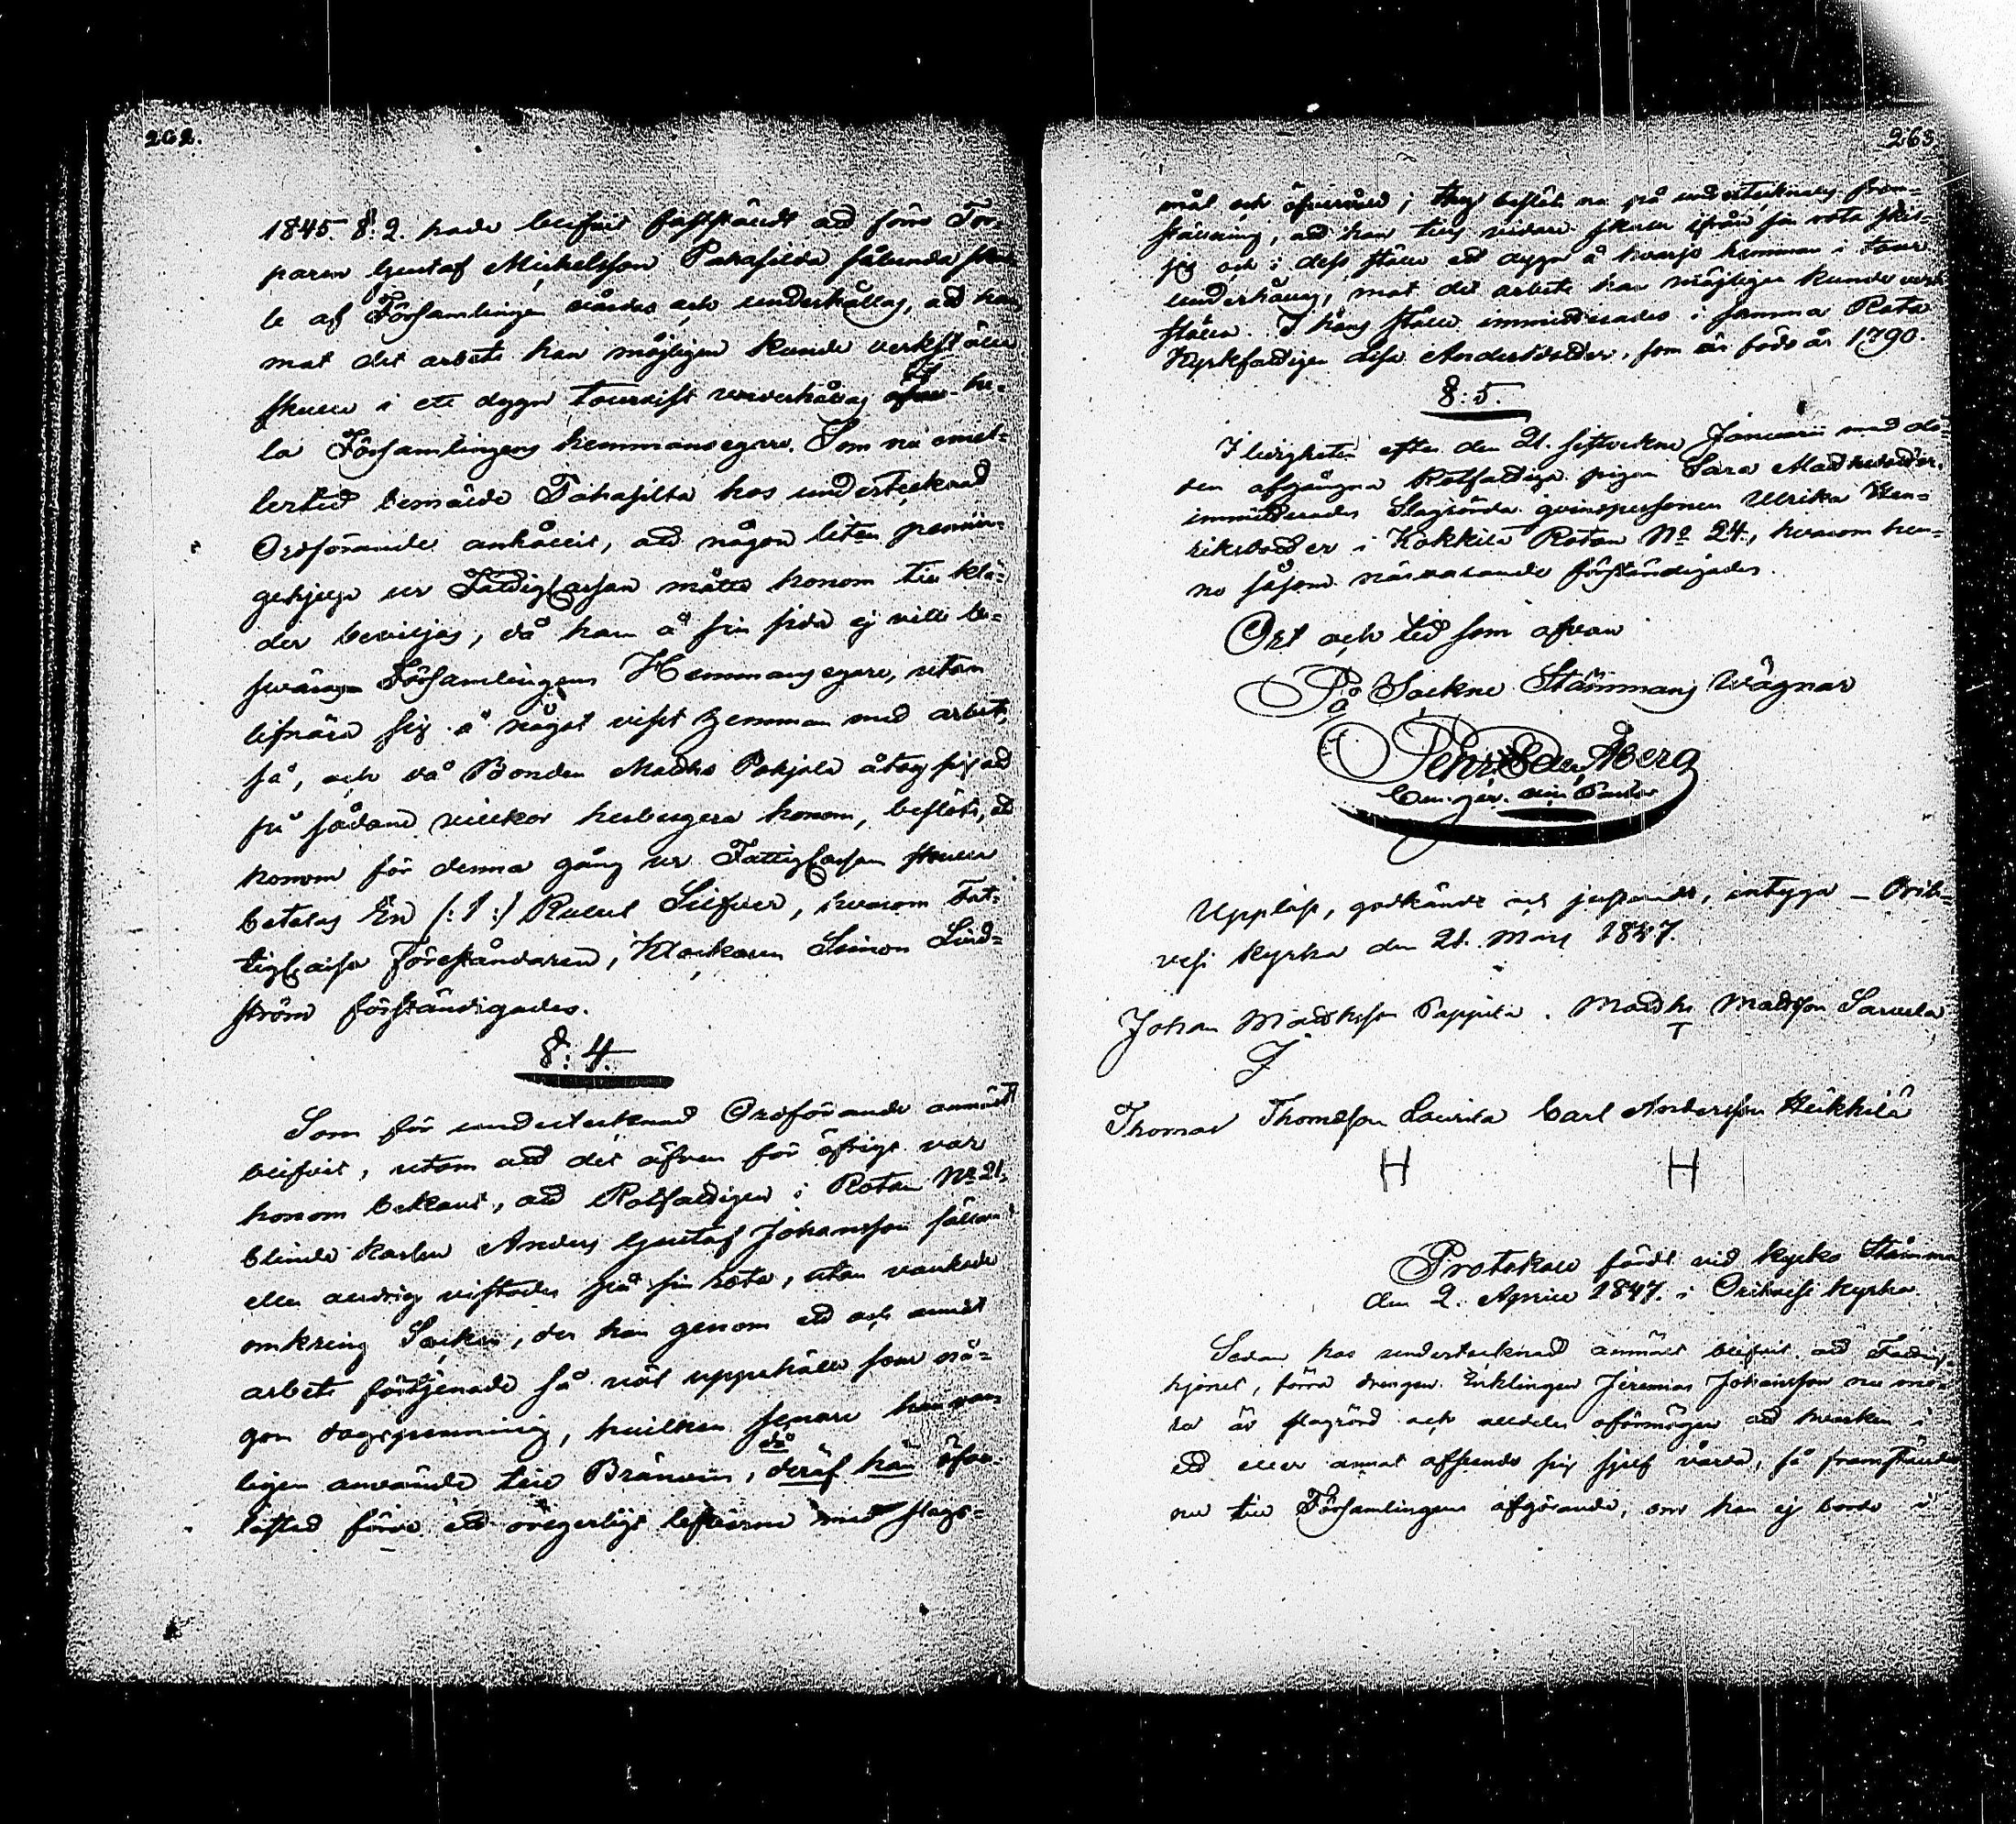 262.
1845. §. 2. hade blifvit faststäldt att förre Tor-
paren Gustaf Michelsson Pahasilda sålunda skul-
le af Församlingen vårdas och underhållas, att han
mot det arbete han möjligen kunde verkställa
skulle i ett dygn tourvist underhållas af he-
la Församlingens hemmansegare. Som nu emel-
lertid bemälde Pahasilta hos undertecknad
Ordförande anhållit, att någon liten pennin-
gehjelp ur Fattigcassan måtte honom till klä-
der beviljas, då han å sin sida ej ville be-
svära Församlingens Hemmansegare, utan
lifnära sig å något visst hemman med arbete,
så, och då Bonden Madhs Pohjola åtog sig att
på sådane villkor herbergera honom, beslöts, att
honom för denna gång ur Fattigcassan skulle
betalas En /: 1 :/ Rubel Silfver, hvarom Fat-
tigcassa Föreståndaren, Klockaren Simon Lind-
ström förständigades.
§: 4.
Som för undertecknad Ordförande anmäldt
blifvit, utom att det äfven för öfrigt var
honom bekant, att Rotfattigen i Rotan No 21,
blinde karlen Anders Gustaf Johansson sällan
eller aldrig vistades på sin rota, utan vankade
omkring Socken, der han genom ett och annat
arbete förtjenade så väl uppehälle som nå-
gon dagspenning, hvilken senare han van-
ligen använde till Bränvin, då deraf han öfver-
lastad förde ett oregerligt lefverne med slags-
263.
mål och öfvervåld; thy beslöts nu på undertecknads fram-
ställning, att han tills vidare skulle ifrån sin rota skil-
jas och i dess ställe ett dygn å hvarje hemman i tour
underhållas, mot det arbete han möjligen kunde verk-
ställa. I hans ställe immitterades i samma Rota
Kyrkfattigen Lisa Andersdotter, som är född år 1790.
§: 5.
I ledigheten efter den 21. sistvekne Januarii med dö-
den afgångna Rotfattiga pigan Sara Madhsdotter,
immitterades Slagrörda qvinspersonen Ulrika Hen-
riksdotter i Kokkila Rotan No 24, hvarom hen-
ne såsom närvarande förständigades.
Ort och tid som ofvan
På Sockne Stämmans Vägnar
Pehr Ed. Åberg
Uppläst, godkändt och justeradt, intyga – Ori-
vesi Kyrka den 21. Mars 1847.
Johan Madhsson Pappila. Madhs Madsson Sarvela
T
Thomas Thomasson Laurila Carl Andersson Heikkilä
H H
Protokoll fördt vid Kyrko Stämma
den 2. April 1847 i Orihvesi Kyrka.
Sedan hos undertecknad anmäldt blifvit att Fattig-
hjonet, förra drengen Enklingen Jeremias Johansson nu me-
ra är slagrörd och alldeles oförmögen att hvarken i
ett eller annat afseende sig sjelf vårda, så framställdes
nu till Församlingens afgörande, om han ej borde i